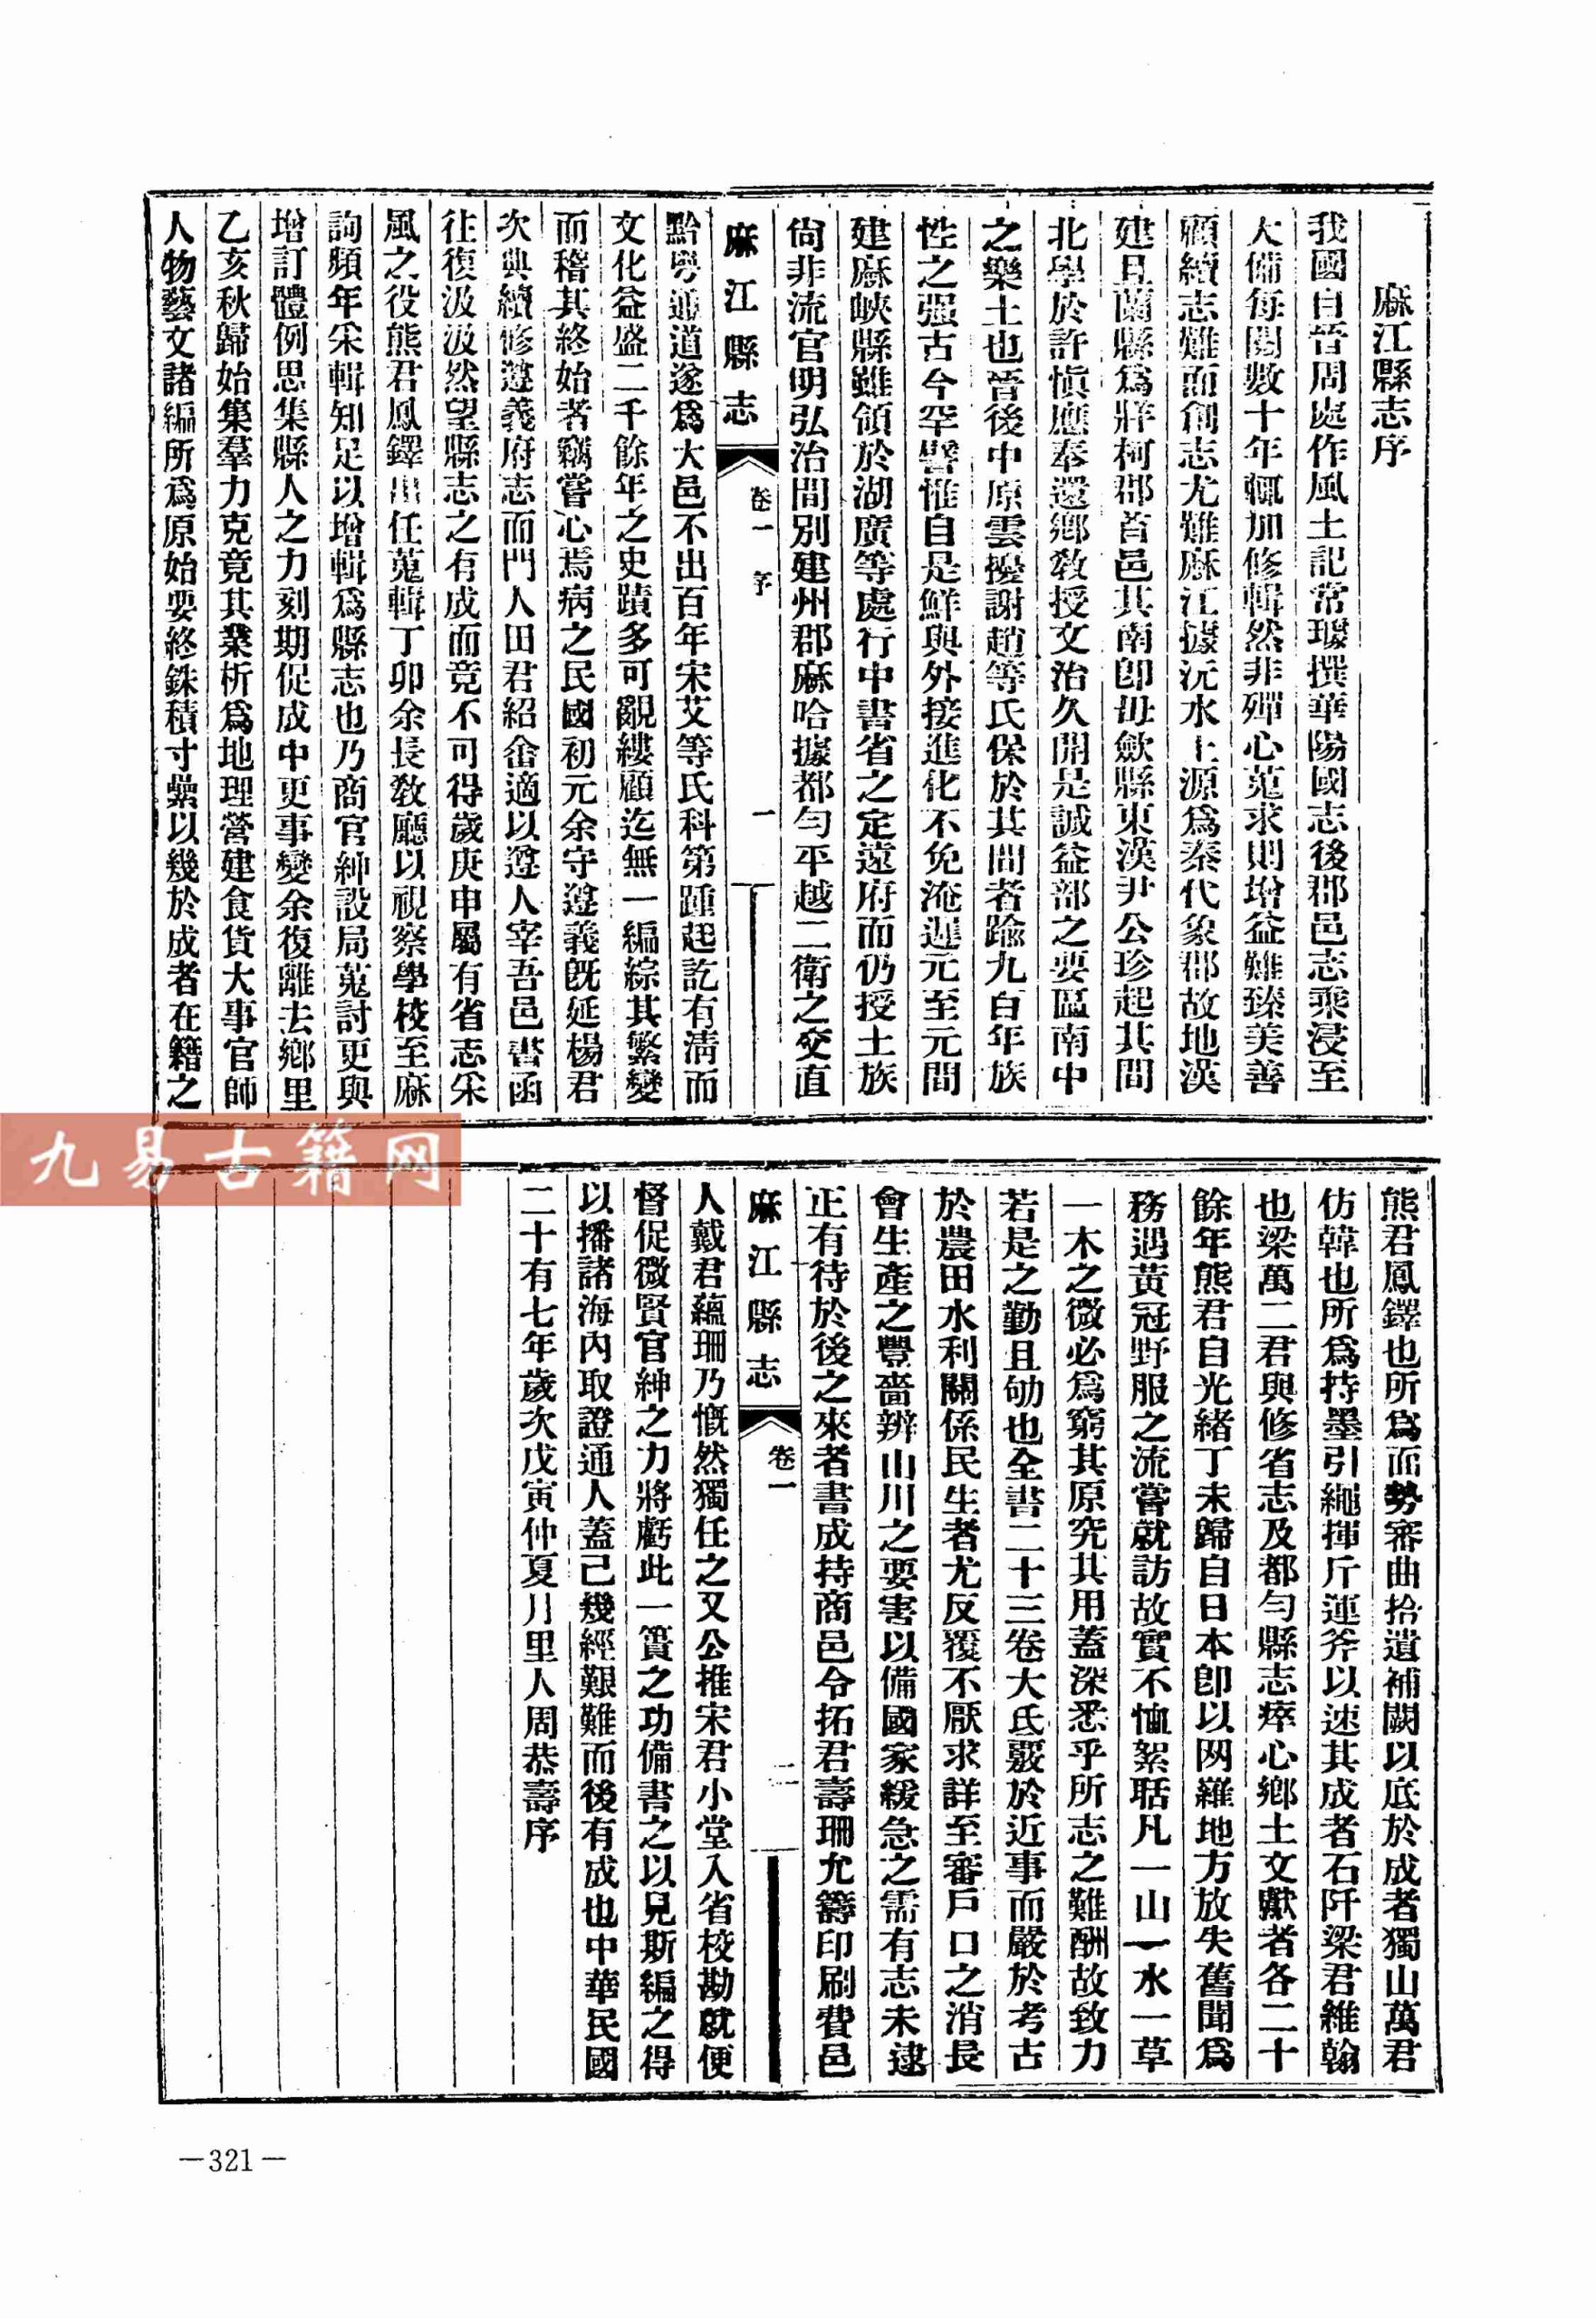 麻江縣志序
我國自晉周處作風土記常璩撰華陽國志後郡邑志乘浸至
大備每閱數十年輒加修輯然非殫心蒐求則增益難臻美善
顧續志難而創志尤難麻江據沅水上源爲秦代象郡故地漢
建且蘭縣爲牂柯郡首邑其南卽毋斂縣東漢尹公珍起其間
北學於許愼應奉還鄉敎授文治久開是誠益部之要區南中
之樂土也晉後中原雲擾謝趙等氏保於其間者踰九百年族
性之强古今罕譬惟自是鮮與外接進化不免淹遲元至元間
建麻峽縣雖領於湖廣等處行中書省之定遠府而仍授土族
尙非流官明弘治間別建州郡麻哈據都勻平越二衛之交直
麻江縣志 卷一 序 一
黔粵通道遂爲大邑不出百年宋艾等氏科第踵起訖有淸而
文化益盛二千餘年之史蹟多可覼縷顧迄無一編綜其繁變
而稽其終始者竊嘗心焉病之民國初元余守遵義旣延楊君
次典續修遵義府志而門人田君紹畬適以遵人宰吾邑書函
往復汲汲然望縣志之有成而竟不可得歲庚申屬有省志采
風之役熊君鳳鐸出任蒐輯丁卯余長敎廳以視察學校至麻
詢頻年采輯知足以增輯爲縣志也乃商官紳設局蒐討更與
增訂體例思集縣人之力刻期促成中更事變余復離去鄉里
乙亥秋歸始集羣力克竟其業析爲地理營建食貨大事官師
人物藝文諸編所爲原始要終銖積寸櫐以幾於成者在籍之
熊君鳳鐸也所爲面勢審曲拾遺補闕以底於成者獨山萬君
仿韓也所爲持墨引繩揮斤運斧以速其成者石阡梁君維翰
也梁萬二君與修省志及都勻縣志瘁心鄉土文獻者各二十
餘年熊君自光緒丁未歸自日本卽以网羅地方放失舊聞爲
務遇黃冠野服之流嘗就訪故實不恤絮聒凡一山一水一草
一木之微必爲窮其原究其用蓋深悉乎所志之難酬故致力
若是之勤且劬也全書二十三卷大氐覈於近事而嚴於考古
於農田水利關係民生者尤反覆不厭求詳至審戶口之消長
會生產之豐嗇辨山川之要害以備國家緩急之需有志未逮
正有待於後之來者書成持商邑令拓君壽珊允籌印刷費邑
麻江縣志 卷一 二
人戴君蘊珊乃慨然獨任之又公推宋君小堂入省校勘就便
督促微賢官紳之力將虧此一簣之功備書之以見斯編之得
以播諸海內取證通人蓋已幾經艱難而後有成也中華民國
二十有七年歲次戊寅仲夏月里人周恭壽序
九易古籍网
—321—